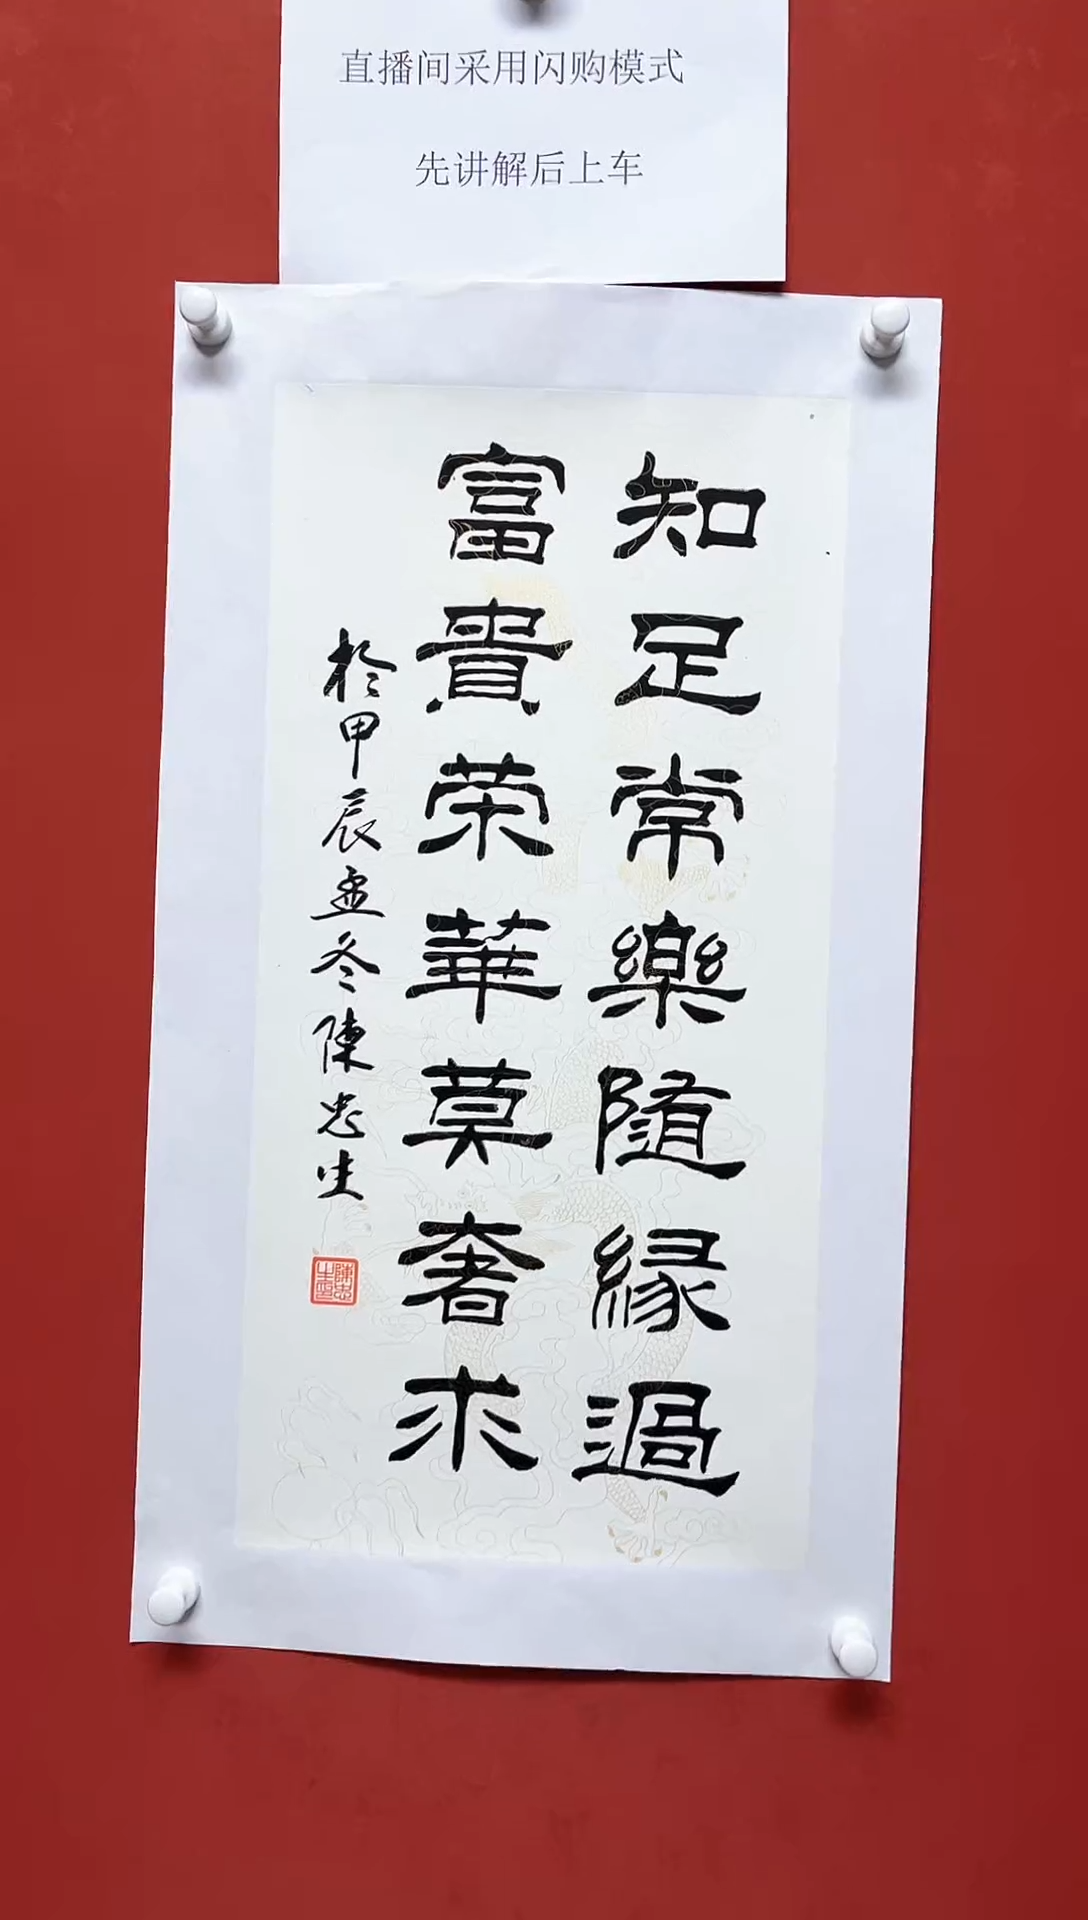 直播间采用闪购模式
先讲解后上车
知足常樂隨緣過
富貴荣華莫奢求
於甲辰孟冬陳忠生
陳忠生印